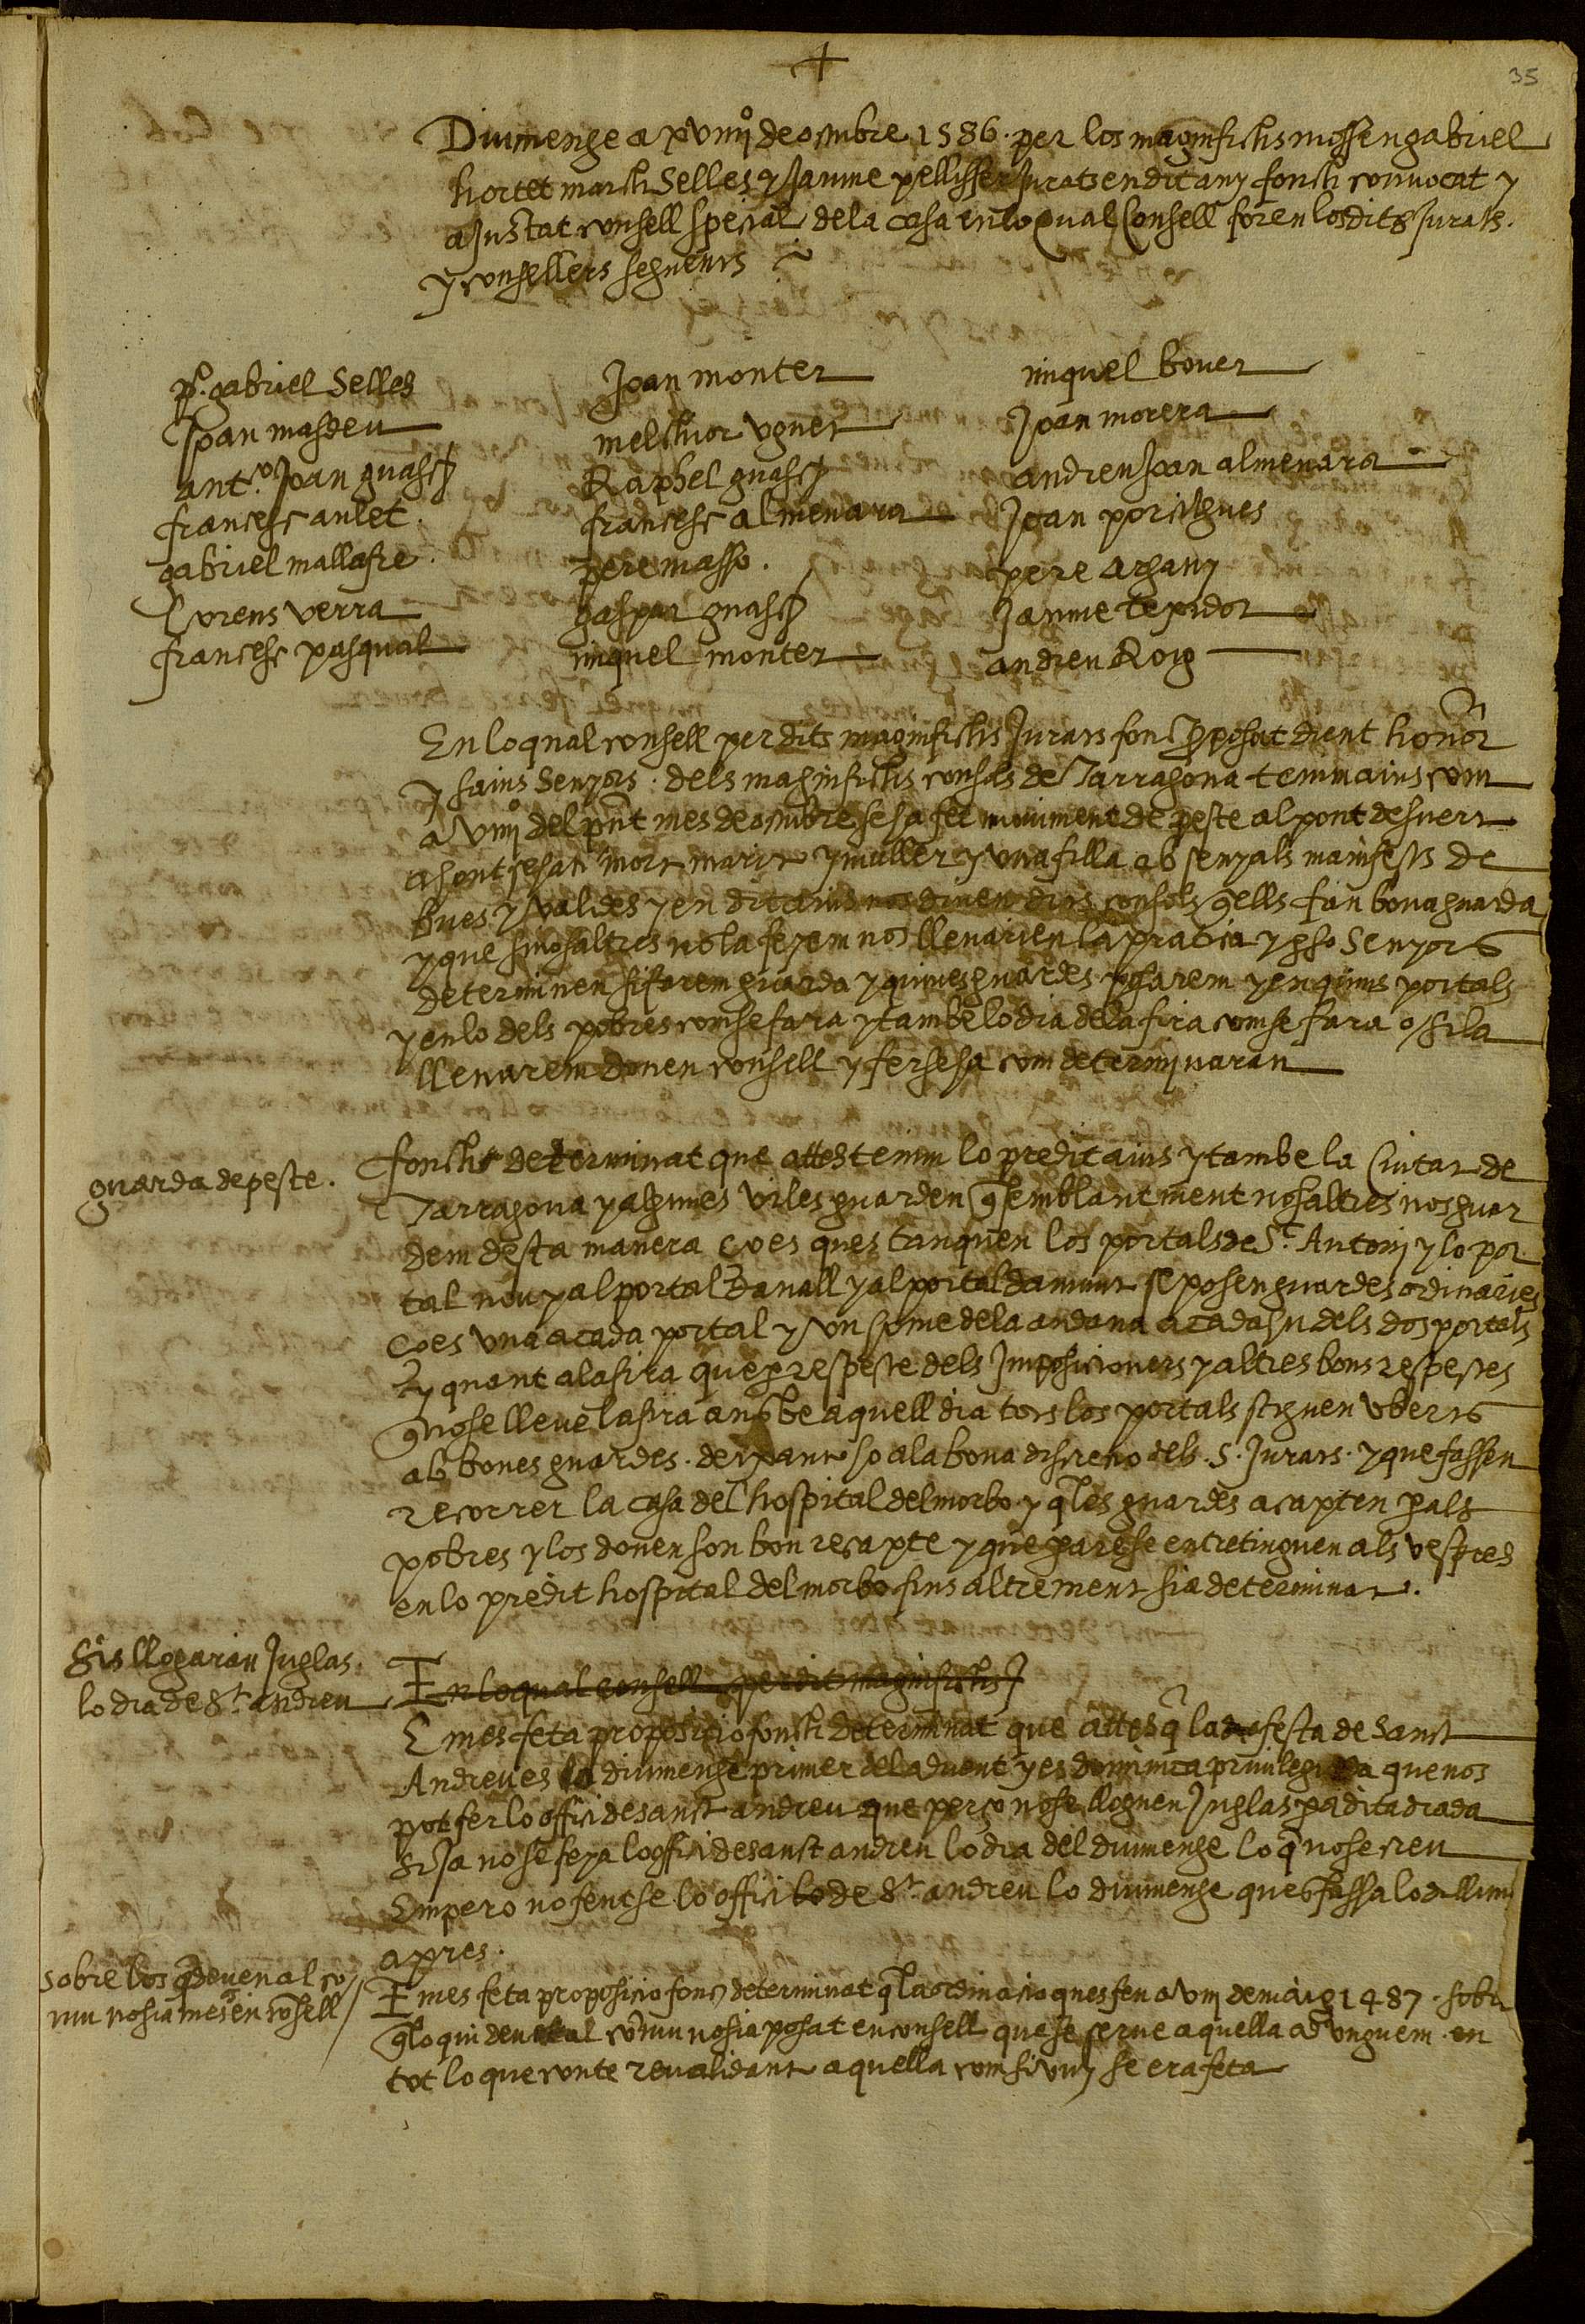 +
35
Diumenge a xviiij de octubre 1586. per los magnifichs mossen gabriel
hortet march Selles y Jaume pellisser Jurats en dit any fonch convocat y
ajustat consell special de la casa en lo qual Consell foren los dits Jurats.
y consellers seguents
pº. gabriel Selles
Joan masdeu
antº. Joan guasch
francesc aulet.
gabriel mallafre.
Lorens verra
francesc pasqual
Joan monter
melchior uguet
Raphel guasch
francesc almenara
pere masso.
gaspar guasch
miquel monter
miquel bover
Joan morera
andreu Joan almenara
Joan porthgues
pere Argany
Jaume texidor
andreu Roig
En lo qual consell per dits magnifichs Jurats fonch pposat dient honor
y sauis Senyors. dels magnifichs consols de Tarragona tenim auis com
a viiij del pnt mes de octubre se ha fet moviment de peste al pont desuert
ahont se han mort marit y muller y una filla ab senyals manifests de
bues y vualdes y en dit auis nos diuen dits consols q ells fan bona guarda
y que si nosaltres no la feyem nos llevarien la pratica y pso Senyors
determinen si farem guarda y quines guardes posarem y en quins portals
y en lo dels pobres com se fara y tambe lo dia de la fira com se fara o si la
llevarem donen consell y ferse ha com determinaran
guarda de peste.
fonch determinat que attes tenim lo predit auis y tambe la Ciutat de
Tarragona y algunes viles guarden q semblantment nosaltres nos guar
dem desta manera ço es ques tanquen los portals de St. Antoni y lo por
tal nou y al portal davall y al portal damunt se posen guardes ordinaries
ço es una a cada portal y un home de la andana a cada hu dels dos portals
y quant a la fira que p respecte dels Imposicioners y altres bons respectes
q no se lleve la fira ans be aquell dia tots los portals stiguen uberts
ab bones guardes. deixant ho a la bona discretio dels .S. Jurats. y que fassen
recorrer la casa del hospital del morbo y q les guardes acapten p als
pobres y los donen son bon recapte y que p are se entretinguen als vespres
en lo predit hospital del morbo fins altrement sia determinat.
Sis llogaran Juglas.
lo dia de St. andreu
En lo qual consell per dits magnifichs J
E mes feta proposicio fonch determinat que attes q la festa de Sanct
Andreu es lo diumenge primer del advent y es dominica privilegiada que nos
pot fer lo offici de sanct andreu que perço no se lloguen Juglas p a dita diada
si ja no se feya lo offici de sanct andreu lo dia del diumenge lo q no se creu
Empero no fentse lo offici de St. andreu lo diumenge ques fassa lo dilluns
apres.
sobre los q deuen al co/
mu no sia mes en cosell/
E mes feta proposicio fonch determinat q la ordinacio ques feu a viiij de maig 1487. sobre
q lo qui deu al comu no sia posat en consell que se serve aquella ad unguem. en
tot lo que conte revalidant aquella com si vuy se era feta